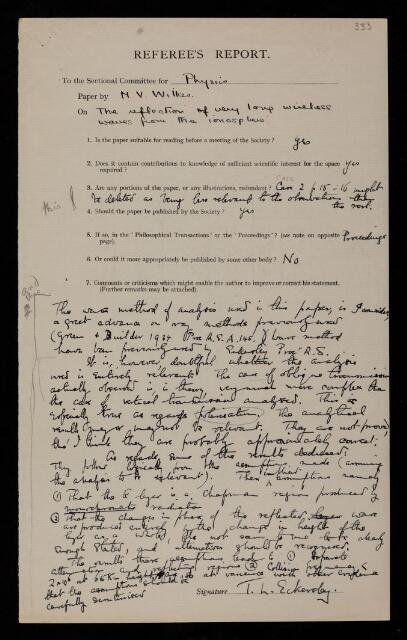 333
REFEREE'S REPORT.
To the Sectional Committee for Physics
Paper by M. V. Wilkes.
On The reflection of very long wireless
waves from the ionosphere
1. Is the paper suitable for reading before a meeting of the Society? yes
2. Does it contain contributions to knowledge of sufficient scientific interest for the space
required? yes
3. Are any portions of the paper, or any illustrations, redundant? Case 2 p 15-16 might
be deleted as being less relevant to the observations than
the rest.
4. Should the paper be published by the Society? yes
5. If so, in the "Philosophical Transactions" or the "Proceedings"? (see note on opposite
page). Proceedings
6. Or could it more appropriately be published by some other body? No
7. Comments or criticisms which might enable the author to improve or correct his statement.
(Further remarks may be attached).
The wave method of analysis used in this paper, is I consider,
a great advance on ray methods previously used
(Green & Builder 1934 Proc R.S. A. 145.) wave method
have been previously used by Eckersley Proc R.S.
It is however doubtful whether the analysis
used is entirely relevant. The case of oblique transmission
actually observed is, in theory, very much more complex than
the case of vertical transmission analysed. This is
especially true as regards polarisation. The analytical
results may or may not be relevant. They are not proved
tho' I think they are probably approximately correct.
As regards some of the results deduced.
They follow logically from the assumptions made (assuming
the analysis to be relevant). These assumptions namely
① That the E layer is a Chapman region produced by
monochromatic radiation
② That the changes in phase of the reflected wave
are produced entirely by the change in height of the
layer as a whole, do not seem to me to be clearly
enough stated, and attention should be
The results these assumptions lead to ① separate
attenuating and reflecting regions ② Collision frequency
at variance with other evidence
that the assumptions should be
carefully scrutinised
Signature T. L. Eckersley.